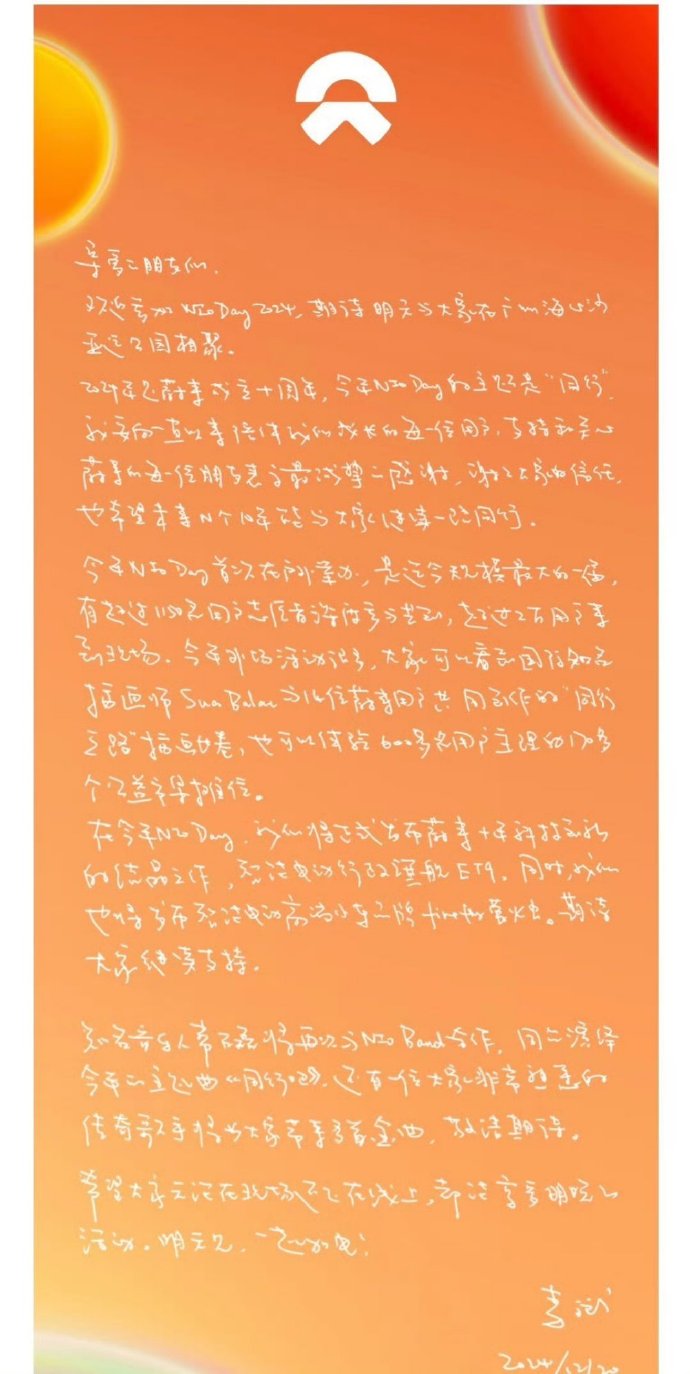 亲爱的朋友们,
欢迎参加 NIO Day 2024, 期待明天与大家在广州海心沙
亚运公园相聚。
2024年是蔚来成立十周年, 今年NIO Day的主题是“同行”.
我要向一直以来陪伴我们成长的每一位用户, 支持和关心
蔚来的每一位朋友表示最诚挚的感谢, 谢谢大家的信任,
也希望未来N个10年能与大家继续一路同行。
今年NIO Day首次在户外举办, 是迄今规模最大的一届,
有超过1150名用户志愿者深度参与共创, 超过2万用户来
到现场. 今年外场活动很多, 大家可以看到国际知名
插画师 与16位蔚来用户共同创作的“同行
之路”插画长卷, 也可以体验600多名用户主理的170多
个公益市集摊位。
在今年NIO Day, 我们将正式发布蔚来十年科技创新
的结晶之作, 智能电动行政旗舰 ET9. 同时, 我们
也将发布智能电动高端小车品牌 firefly萤火虫。期待
大家继续支持.
知名音乐人常石磊将再次与NIO Band合作, 同台演绎
今年的主题曲《同行吧》. 还有一位大家非常想见的
传奇歌手将为大家带来多首金曲, 敬请期待。
希望大家无论在现场还是在线上, 都能享受明晚的
活动. 明天见,
李斌
2024/12/20